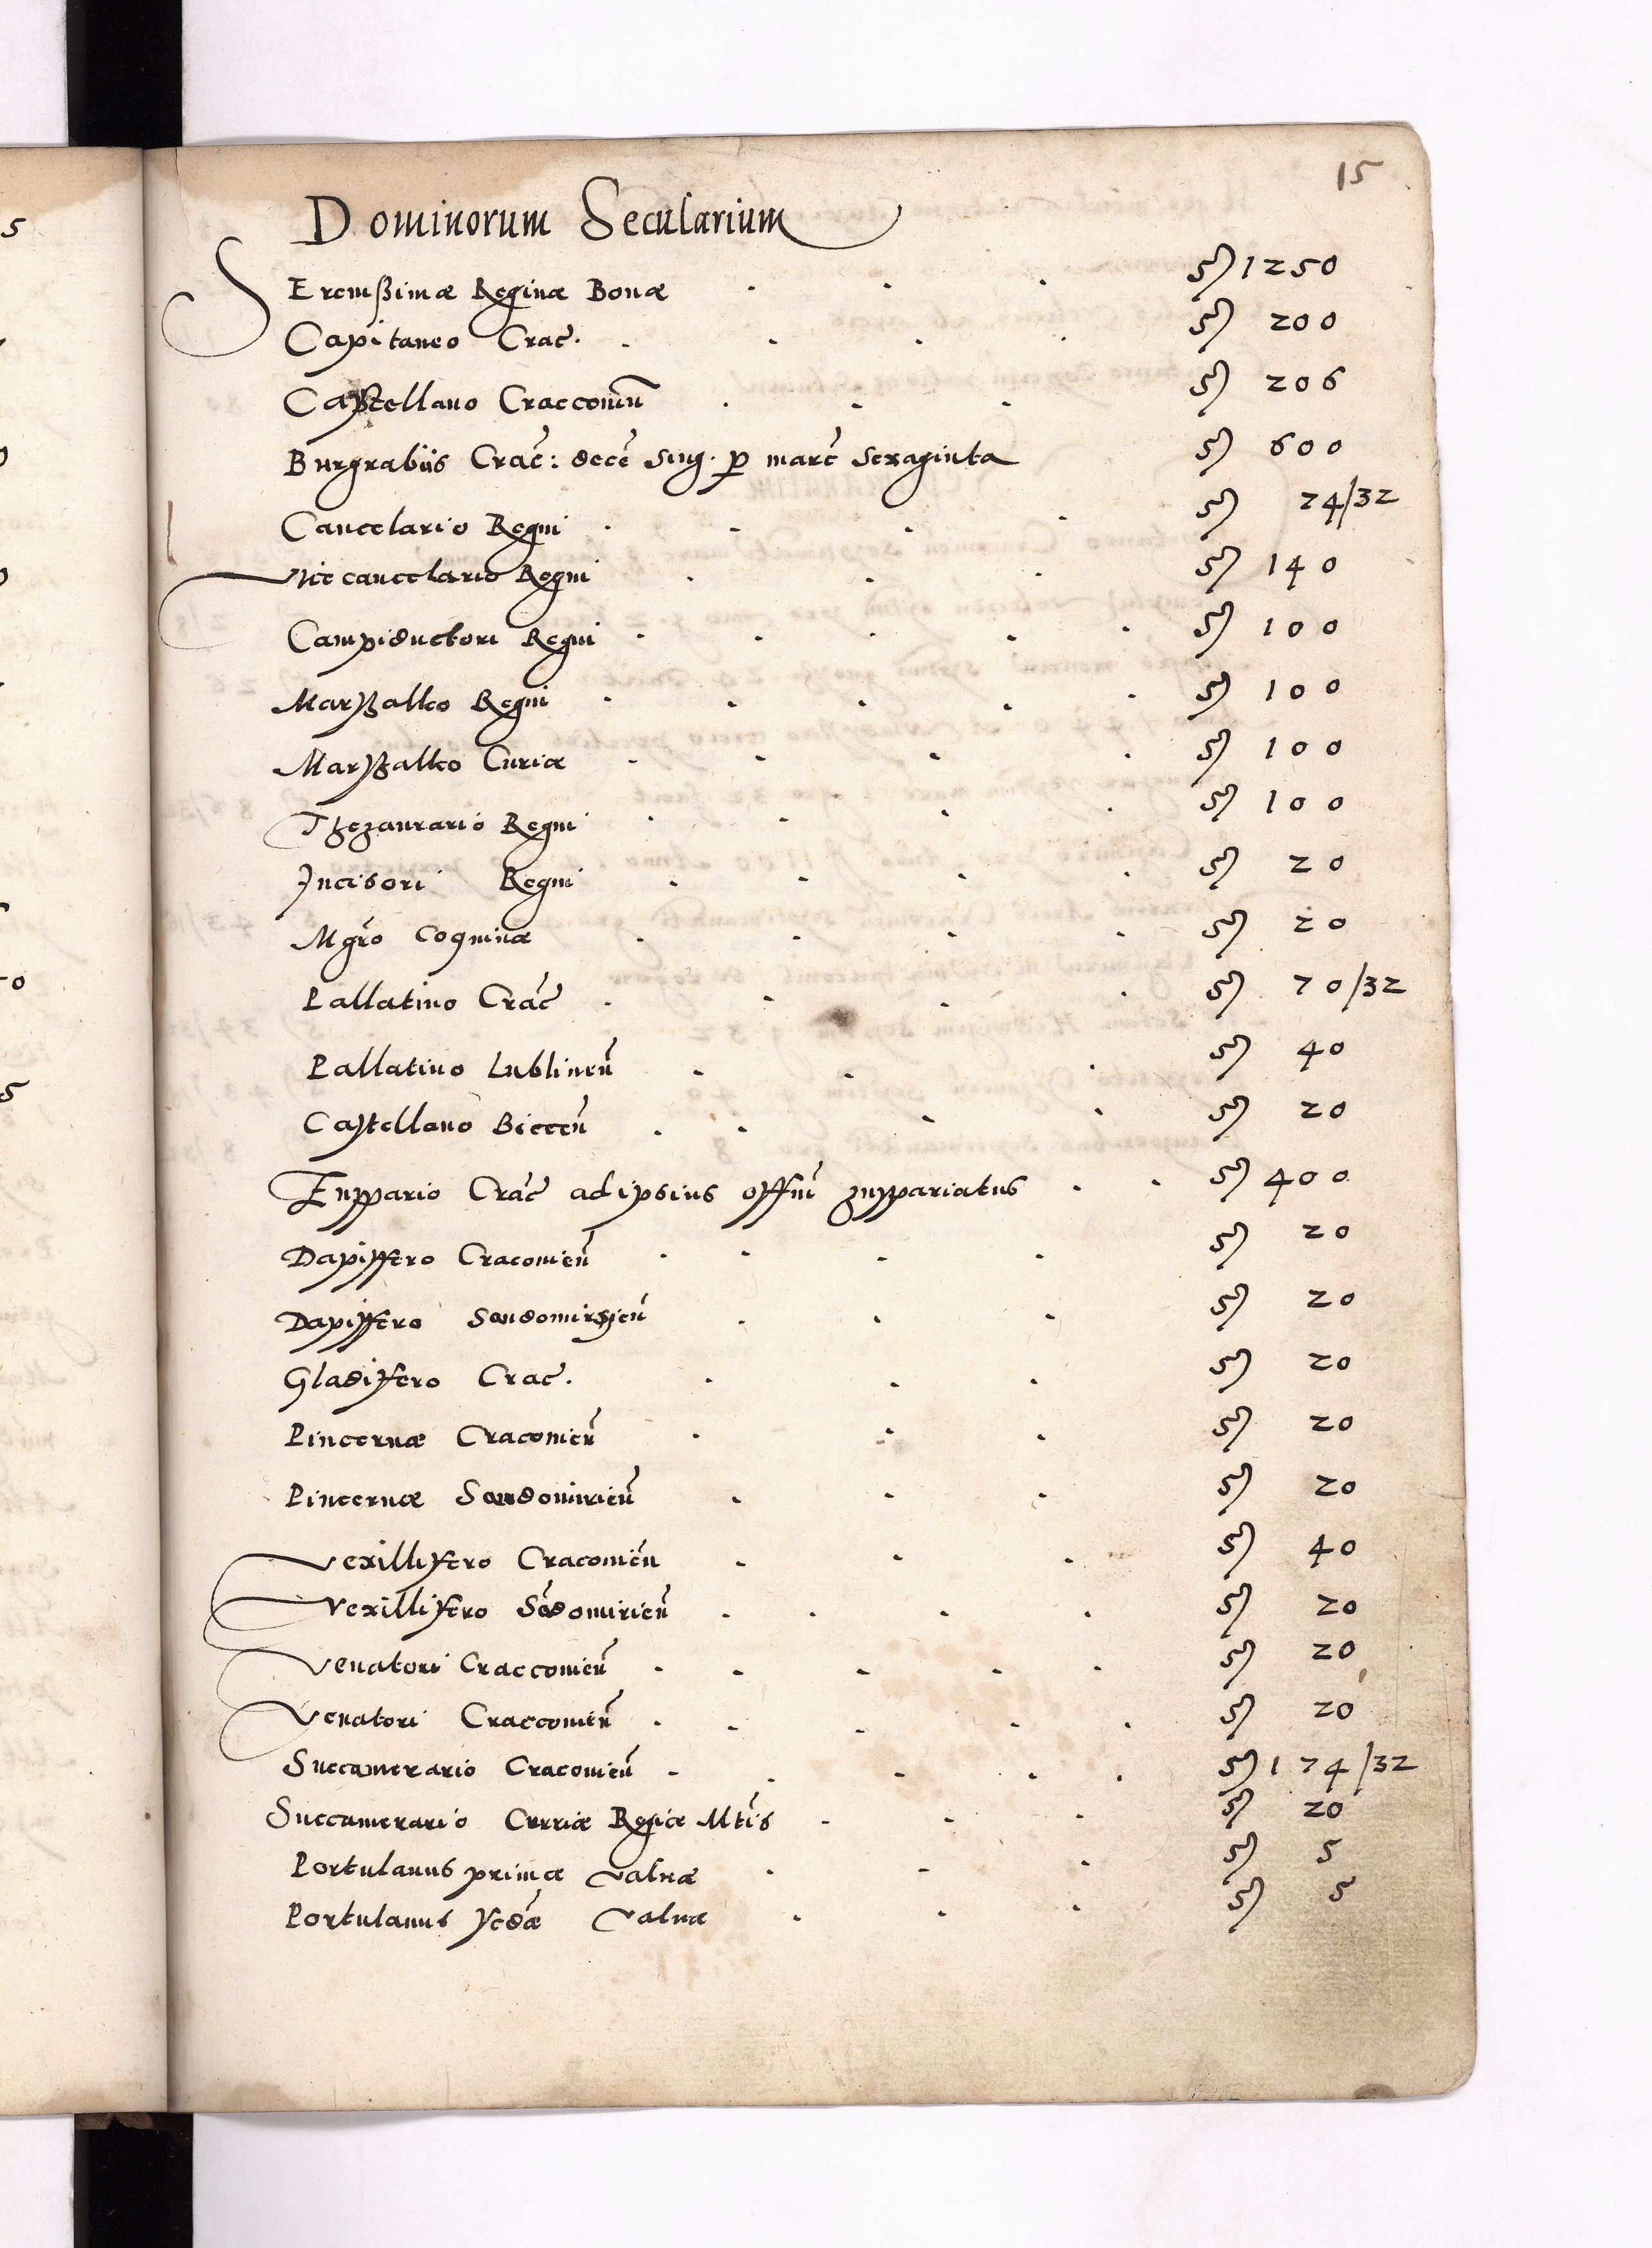 15
Dominorum Secularium
SErenißimæ Reginæ Bonæ . . . 1250
Capitaneo Crac. . . . . 200
Castellano Cracconien̄ . . . 206
Burgrabiis Crac̄: decē sing. ꝑ marc̄ sexaginta 600
Cancelario Regni . . . . 24/32
Vicecancelario Regni . . . 140
Campiductori Regni . . . . . 100
Marszalko Regni . . . . . 100
Marszalko Curiæ . . . . 100
Thezaurario Regni . . . . 100
Incisori Regni . . . . 20
Mgr̄o Coquinæ . . . . 20
Pallatino Crac̄ . . . . 70/32
Pallatino Lublinen̄ . . . 40
Castellano Biecen̄ . . . . 20
Zuppario Crac̄ ad ipsius offm̄ zuppariatus . . 400
Dapiffero Cracovien̄ . . . . 20
Dapiffero Sandomirien̄ . . . 20
Gladifero Crac. . . . 20
Pincernæ Cracovien̄ . . . 20
Pincernæ Sandomirien̄ . . . 20
Vexillifero Cracovien̄ . . . 40
Vexillifero Sādomirien̄ . . . . 20
Venatori Cracconien̄ . . . . . 20
Venatori Cracconien̄ . . . . . 20
Succamerario Cracovien̄ . . . . . 174/32
Succamerario Curiæ Regiæ Mtīs . . . 20
Portulanus primæ valvæ . . . 5
Portulanus scdǣ valvæ . . . 5